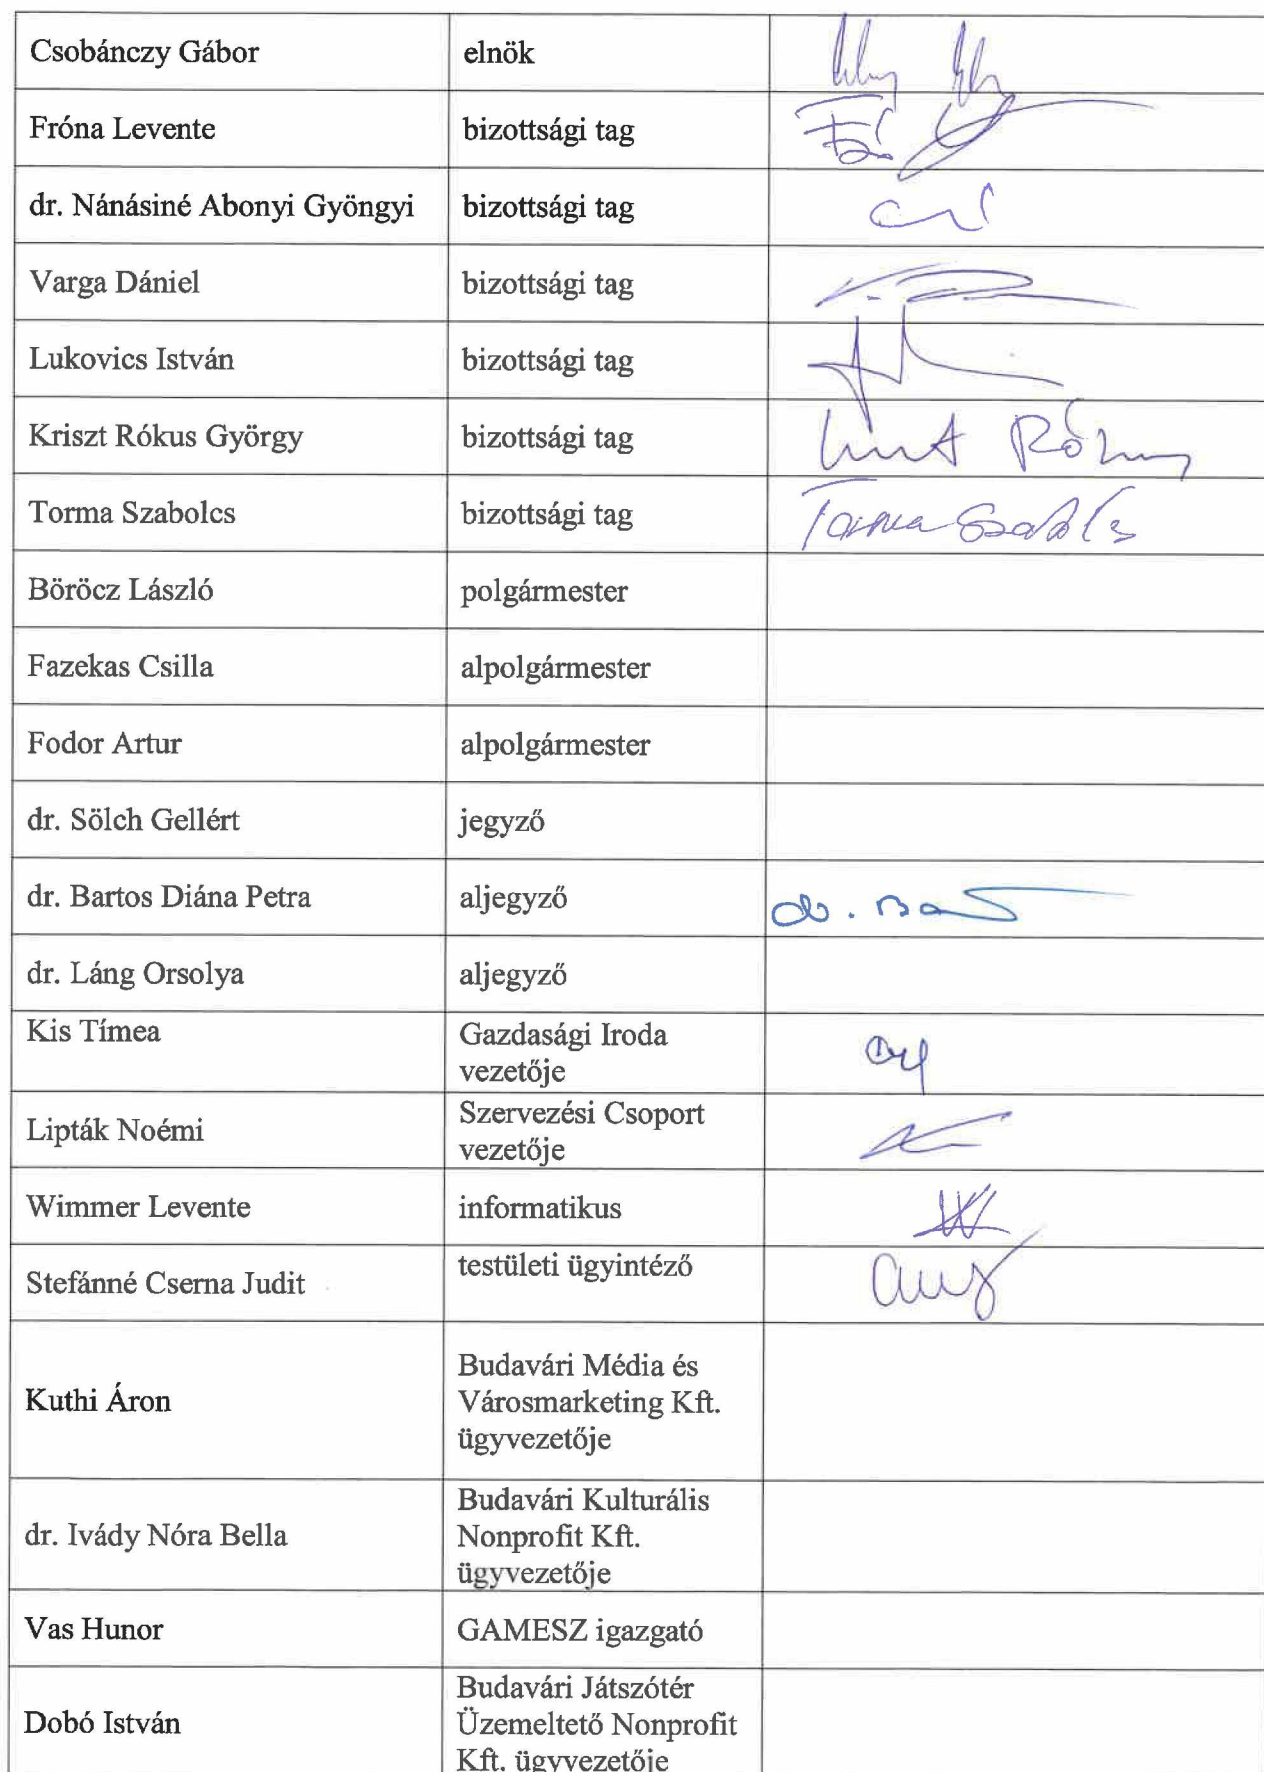 Csobánczy Gábor elnök
Fróna Levente bizottsági tag
dr. Nánásiné Abonyi Gyöngyi bizottsági tag
Varga Dániel bizottsági tag
Lukovics István bizottsági tag
Kriszt Rókus György bizottsági tag
Torma Szabolcs bizottsági tag Torma Szabolcs
Böröcz László polgármester
Fazekas Csilla alpolgármester
Fodor Artur alpolgármester
dr. Sölch Gellért jegyző
dr. Bartos Diána Petra aljegyző
dr. Láng Orsolya aljegyző
Kis Tímea Gazdasági Iroda
vezetője
Lipták Noémi Szervezési Csoport
vezetője
Wimmer Levente informatikus
Stefánné Cserna Judit testületi ügyintéző
Kuthi Áron Budavári Média és
Városmarketing Kft.
ügyvezetője
dr. Ivády Nóra Bella Budavári Kulturális
Nonprofit Kft.
ügyvezetője
Vas Hunor GAMESZ igazgató
Dobó István Budavári Játszótér
Üzemeltető Nonprofit
Kft. ügyvezetője